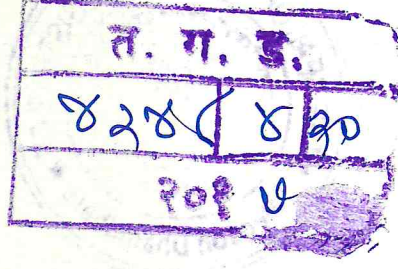 त. ग. ड.
४२४८ ४ २०
२०१ ७